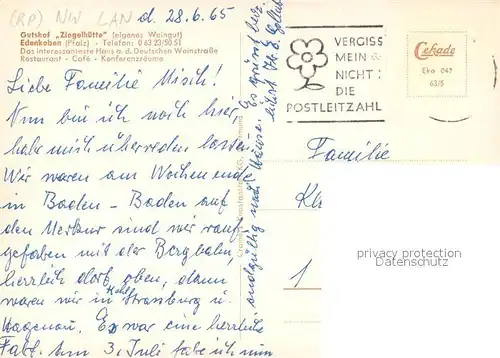 (RP) NW LAN d. 28.6.65
Gutshof „Ziegelhütte" (eigenes Weingut)
Edenkoben (Pfalz) - Telefon: 0 63 23/50 51
Das interessante Haus a. d. Deutschen Weinstraße
Restaurant - Café - Konferenzräume
Liebe Familie Misch!
Nun bin ich noch hier,
habe mich überreden lassen.
Wir waren am Wochenende
in Baden-Baden auf
den Merkur sind wir rauf
gefahren mit der Bergbahn,
herrlich dort oben, dann
waren wir in Kehl Strassburg u.
Hagenau. Es war eine herrliche
Fahrt. Am 3. Juli fahre ich nun
endgültig nach Hause. Es grüsst herz
lichst Ihre E.
VERGISS
MEIN
NICHT:
DIE
POSTLEITZAHL
Cekade
Eko 047
63/5
Familie
Kl
privacy protection
Datenschutz